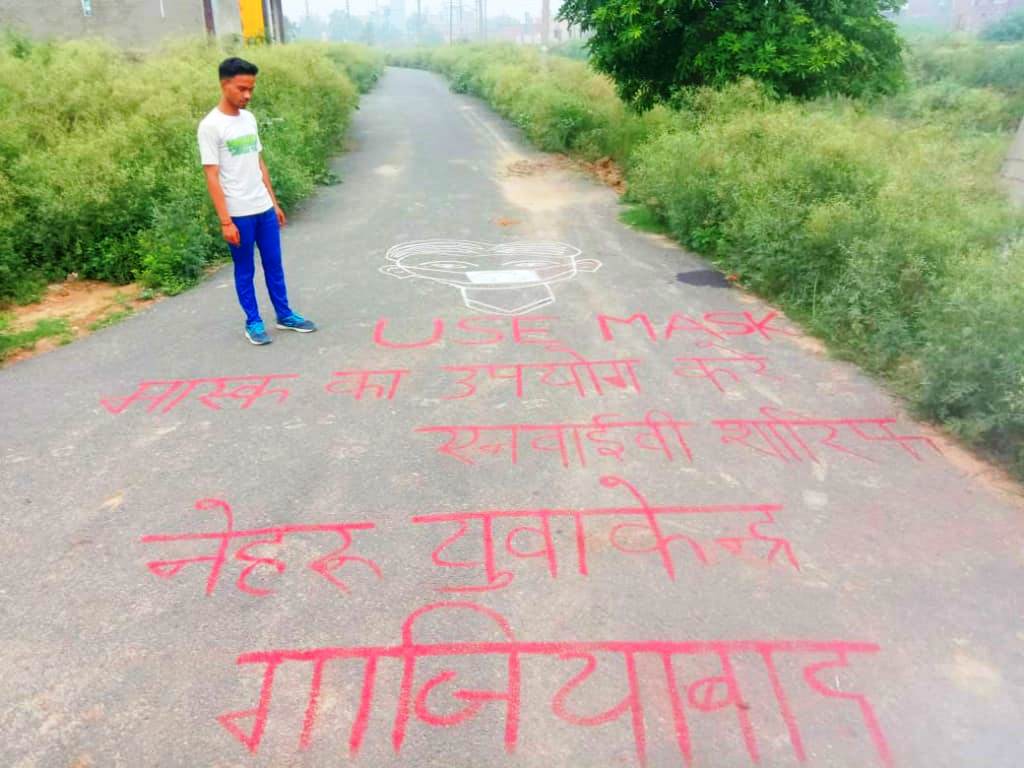 USE MASK
मास्क का उपयोग करे
एनवाईवी शारिफ
नेहरू युवा केन्द्र
गाजियाबाद